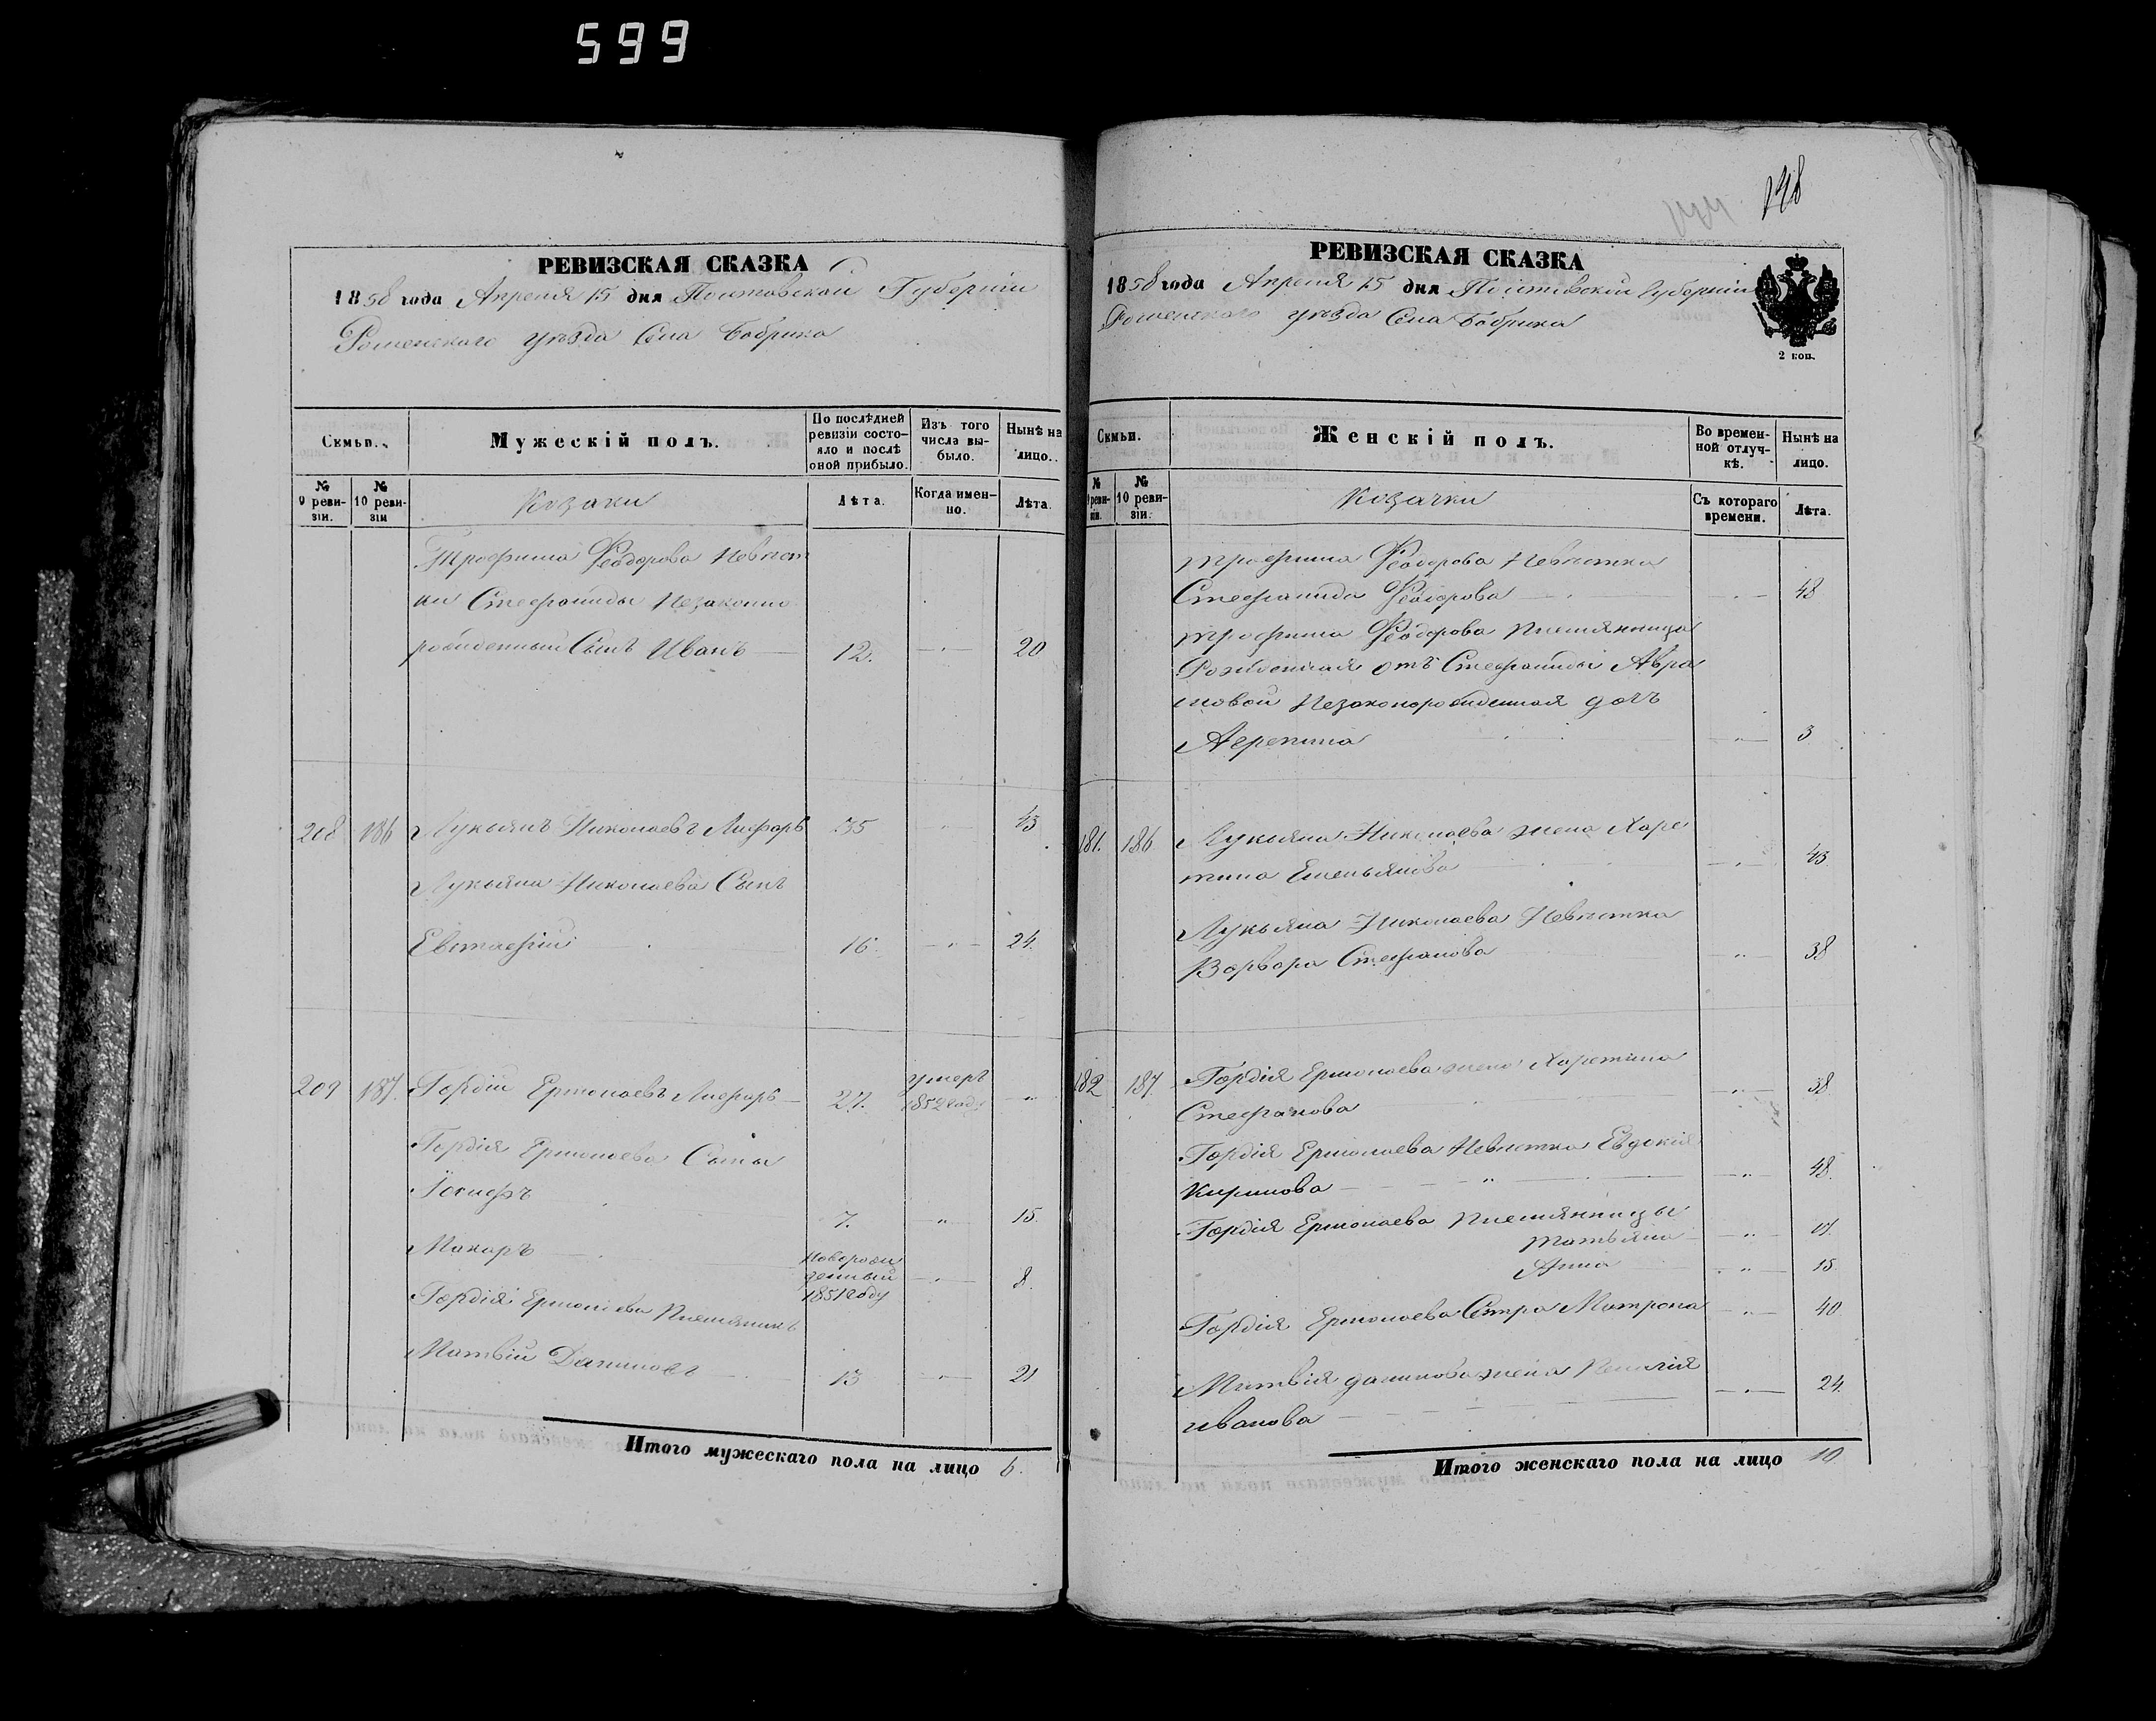 599
148
144
РЕВИЗСКАЯ СКАЗКА
1858 года Апреля 15 дня Полтавской Губерніи
Роменского уѣзда Села Бобрика
Семьи.
Мужескій полъ.
По послѣдней ревизіи состояло и послѣ оной прибыло.
Изъ того числа выбыло.
Нынѣ на лицо.
№ 9 ревизіи.
№ 10 ревизіи
Козаки
Лѣта.
Когда именно.
Лѣта.
Трофима Феодорова Невѣст
ки Стефаниды Незаконно
рожденный Сынъ Иванъ 12. 20
208 186 Лукьянъ Николаевъ Лифарь 35 43
Лукьяна Николаева Сынъ
Евстафій 16. 24.
209 187. Гордій Ермолаевъ Лифарь 27. умеръ 1852 году
Гордія Ермолаева Сыны
Іосифъ 7. 15.
Макаръ новорожденный 1851 году 8.
Гордія Ермолаева Племянникъ
Матвій Даниловъ 13 21
Итого мужескаго пола на лицо 6.
РЕВИЗСКАЯ СКАЗКА
1858 года Апреля 15 дня Полтавской Губерніи
Роменского уѣзда Села Бобрика
2 коп.
Семьи.
Женскій полъ.
Во временной отлучкѣ.
Нынѣ на лицо.
№ 9 ревизіи.
№ 10 ревизіи.
Козачки
Съ котораго времени.
Лѣта.
Трофима Феодорова Невѣстка
Стефанида Феодорова 48
Трофима Феодорова племянница
Рожденная отъ Стефаниды Авра
мовой Незаконорожденная дочь
Агрепина 3
181. 186 Лукьяна Николаева жена Харе
тина Емельянова 43
Лукьяна Николаева Невѣстка
Варвара Стефанова 38
182 187. Гордія Ермолаева жена Харетина
Стефанова 38
Гордія Ермолаева Невѣстка Евдокія
Кирилова 48.
Гордія Ермолаева племянницы
Татьяна
Анна 15.
Гордія Ермолаева Сестра Матрона 40
Матвія Данилова жена
Иванова 24.
Итого женскаго пола на лицо 10